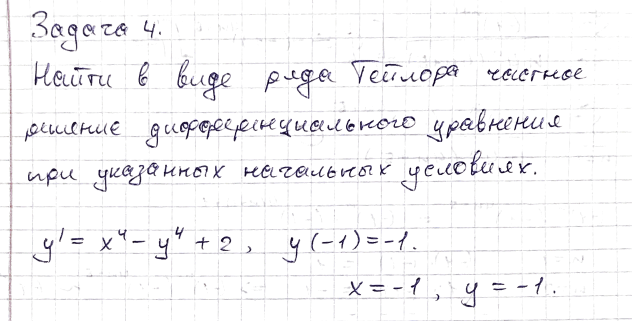 Задача 4.
Найти в виде ряда Тейлора частное
решение дифференциального уравнения
при указанных начальных условиях.
y' = x⁴ − y⁴ + 2, y(−1) = −1.
x = −1, y = −1.